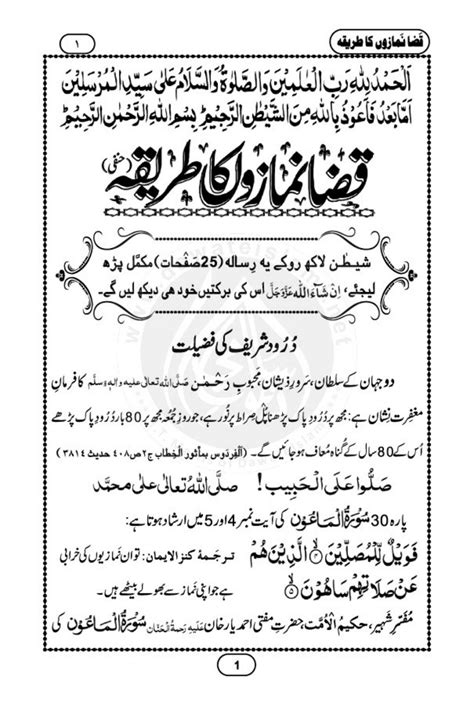 قضا نمازوں کا طریقہ
۱
اَلْحَمْدُ لِلّٰہِ رَبِّ الْعٰلَمِیْنَ وَالصَّلٰوۃُ وَالسَّلَامُ عَلٰی سَیِّدِ الْمُرْسَلِیْنَ
اَمَّا بَعْدُ فَاَعُوْذُ بِاللّٰہِ مِنَ الشَّیْطٰنِ الرَّجِیْمِ ؕ بِسْمِ اللّٰہِ الرَّحْمٰنِ الرَّحِیْمِ ؕ
قضا نمازوں کا طریقہ (حنفی)
شیطٰن لاکھ روکے یہ رِسالہ (25صَفْحات) مکمَّل پڑھ
لیجئے، اِنْ شَآءَ اللّٰہ عَزَّوَجَلَّ اس کی برکتیں خود ہی دیکھ لیں گے۔
دُرُود شریف کی فضیلت
دو جہان کے سلطان، سرورِ ذیشان، محبوبِ رَحْمٰن صَلَّی اللہُ تعالٰی علیہ واٰلہٖ وسلَّم کا فرمانِ
مغفِرت نشان ہے: مجھ پر دُرُودِ پاک پڑھنا پُل صراط پر نور ہے، جو روزِ جُمُعہ مجھ پر 80 بار دُرُودِ پاک پڑھے
اُس کے 80 سال کے گناہ مُعاف ہو جائیں گے۔ (اَلْفِردَوس بمأثور الْخِطاب ج۲ص۴۰۸ حدیث ۳۸۱۴)
صَلُّوا عَلَی الْحَبِیْب! صلَّی اللہُ تعالٰی علٰی محمَّد
پارہ 30 سُوْرَۃُ الْمَاعُوْن کی آیت نمبر 4 اور 5 میں ارشاد ہوتا ہے:
فَوَیْلٌ لِّلْمُصَلِّیْنَ ۙ﴿۴﴾ الَّذِیْنَ هُمْ ترجَمۂ کنز الایمان: تو ان نَمازیوں کی خرابی
عَنْ صَلَاتِهِمْ سَاهُوْنَ ۙ﴿۵﴾ ہے جو اپنی نَماز سے بھولے بیٹھے ہیں۔
مُفَسّرِ شہیر، حکیمُ الْاُمَّت، حضرتِ مفتی احمد یار خان عَلَیْہِ رَحْمَۃُ الْحَنَّان سُوْرَۃُ الْمَاعُوْن کی
1